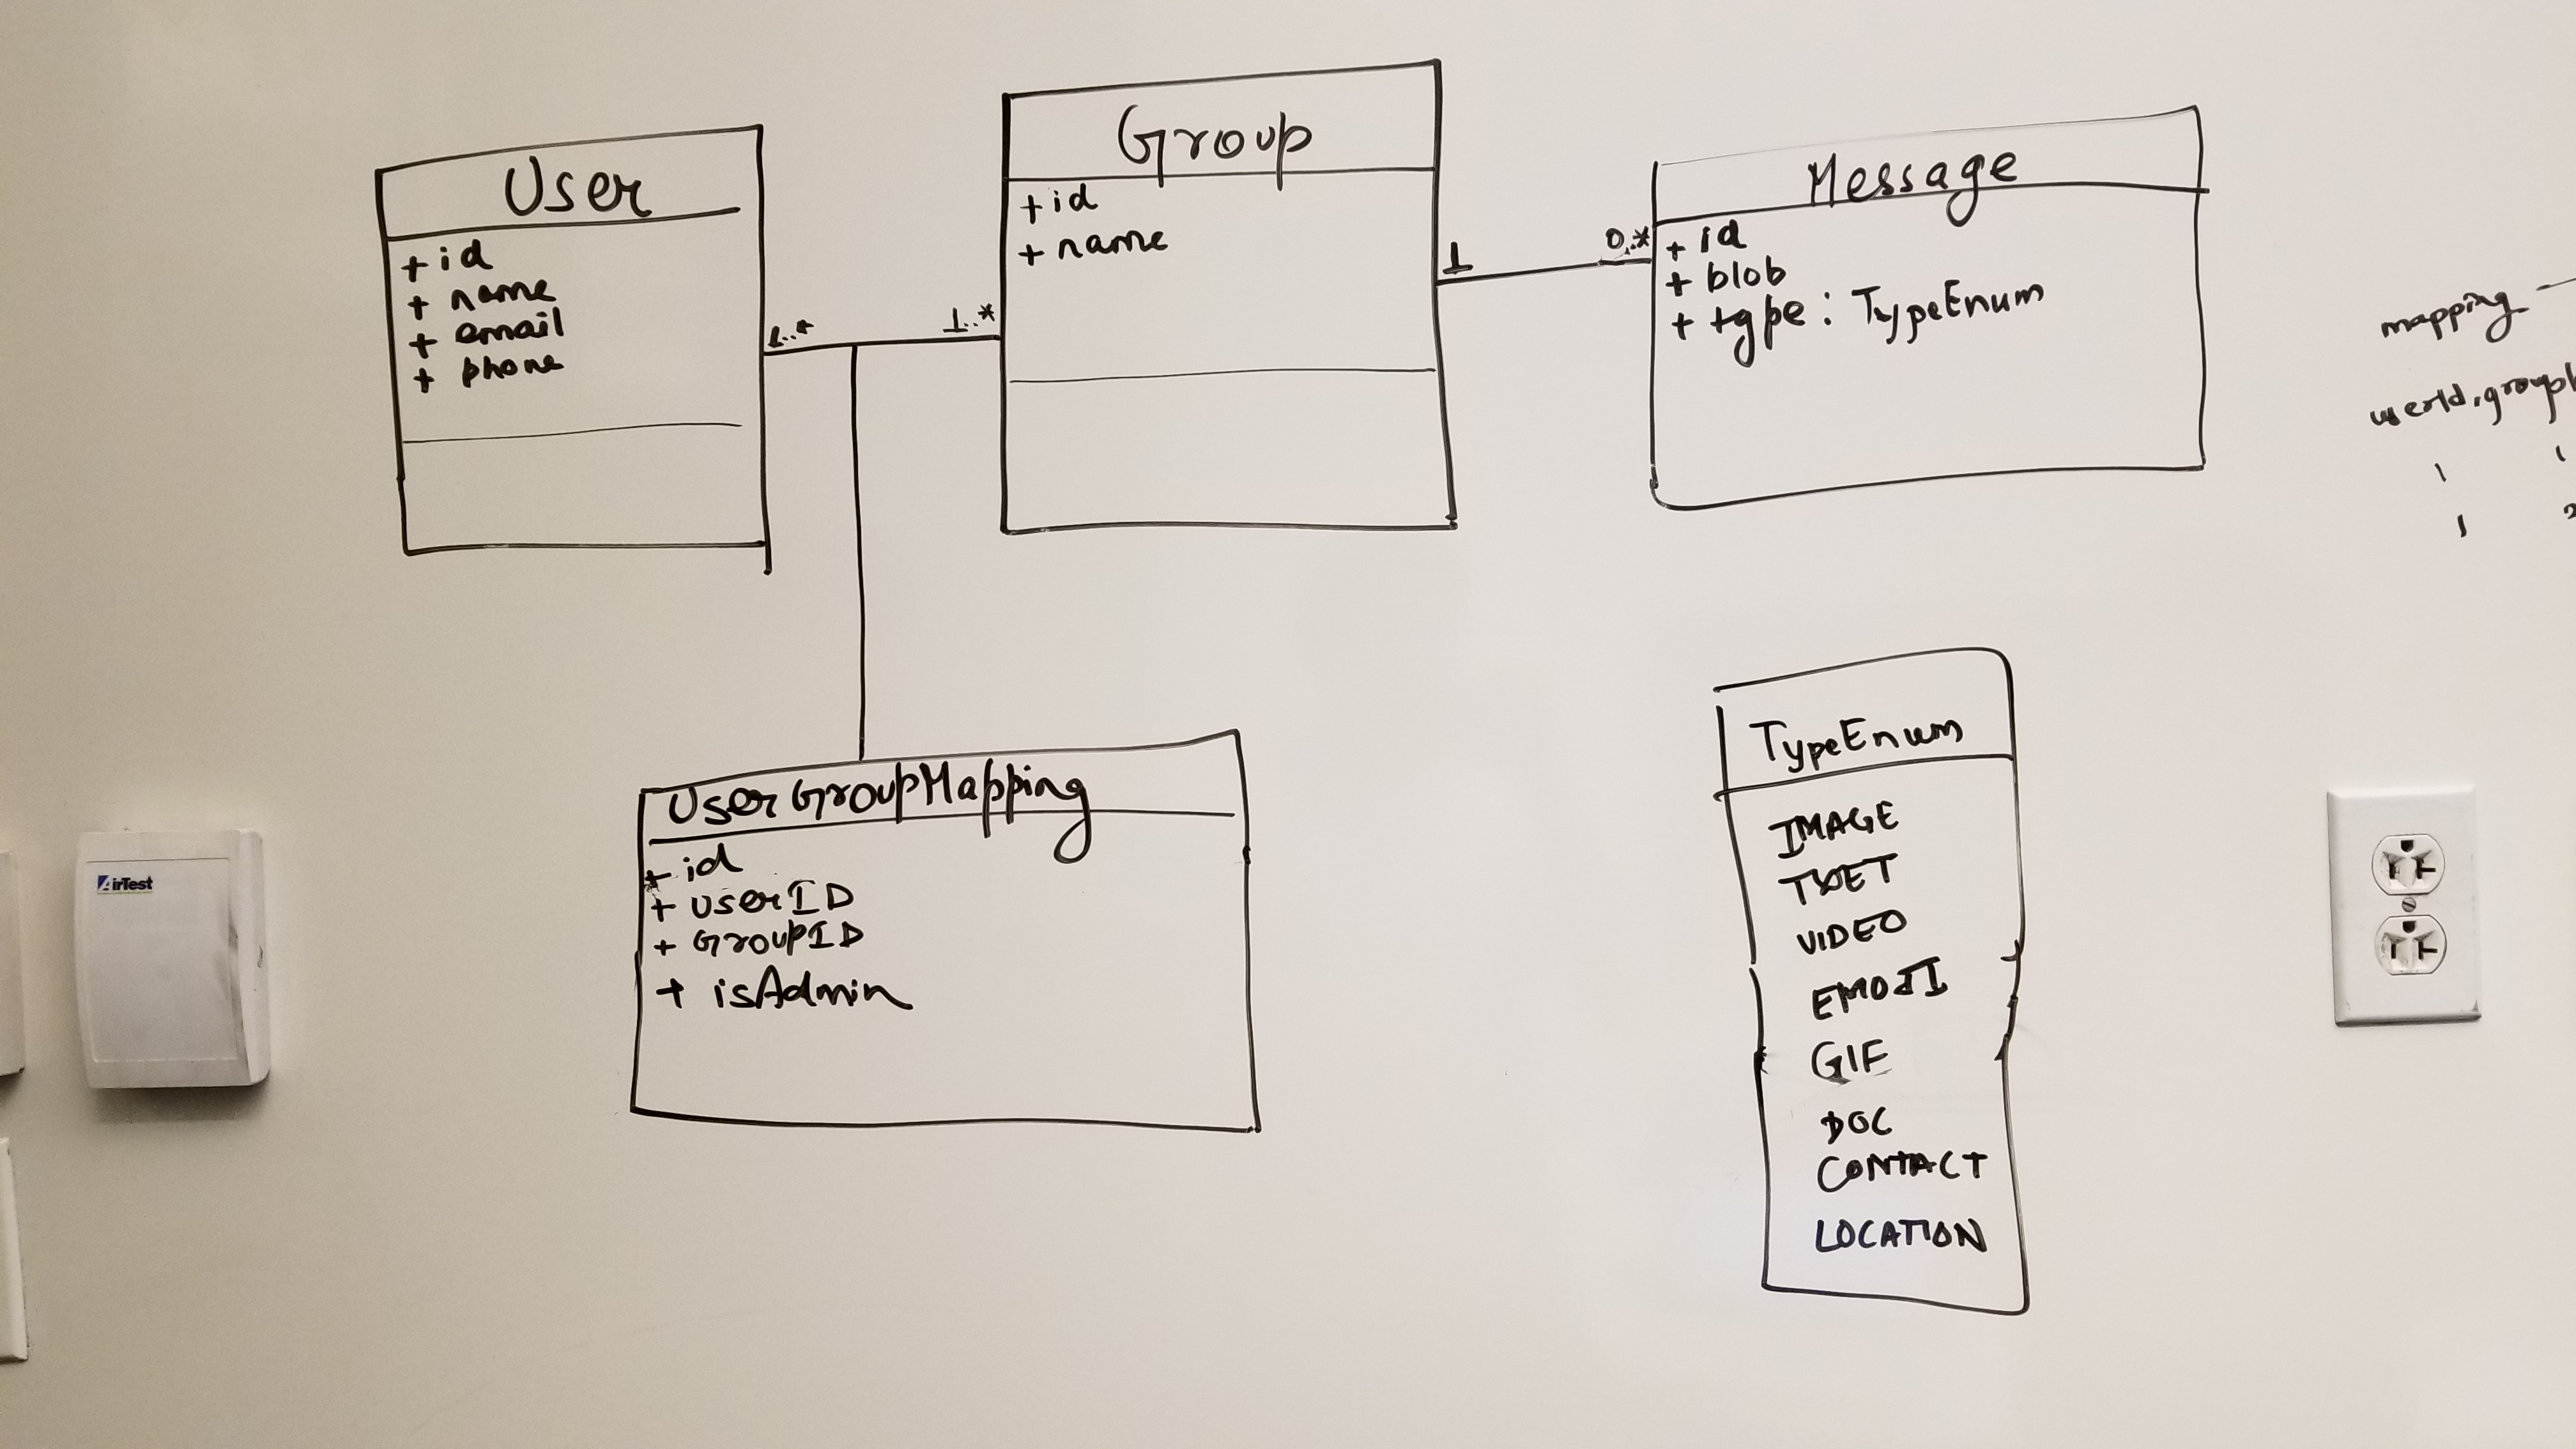 User
+ id
+ name
+ email
+ phone
1..*
1..*
Group
+ id
+ name
1
0..*
Message
+ id
+ blob
+ type : TypeEnum
mapping
UserGroupMapping
+ id
+ userID
+ GroupID
+ isAdmin
TypeEnum
IMAGE
TXET
VIDEO
EMOJI
GIF
DOC
CONTACT
LOCATION
AirTest